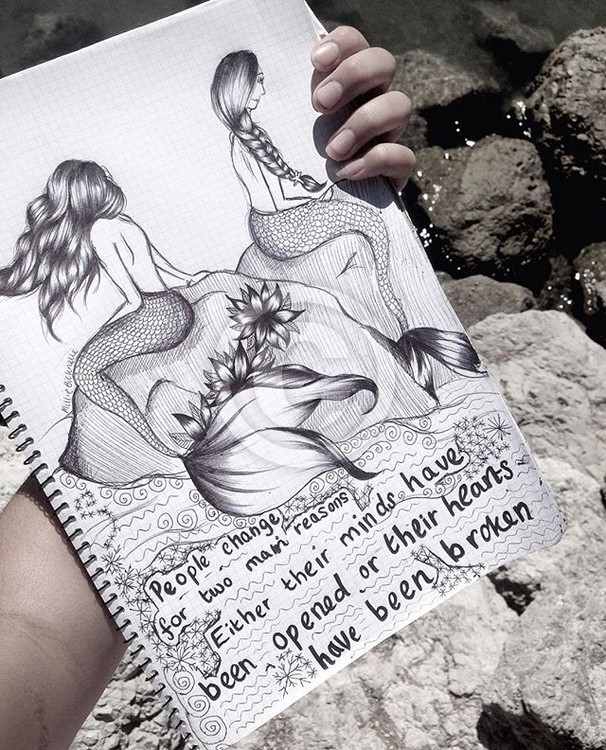 People change
for two main reasons
Either their minds have
been opened or their hearts
have been broken